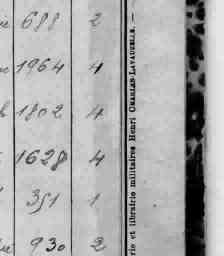 688 2
1964 4
1802 4
1628 4
351 1
930 2
rie et librairie militaires Henri CHARLES-LAVAUZELLE. —